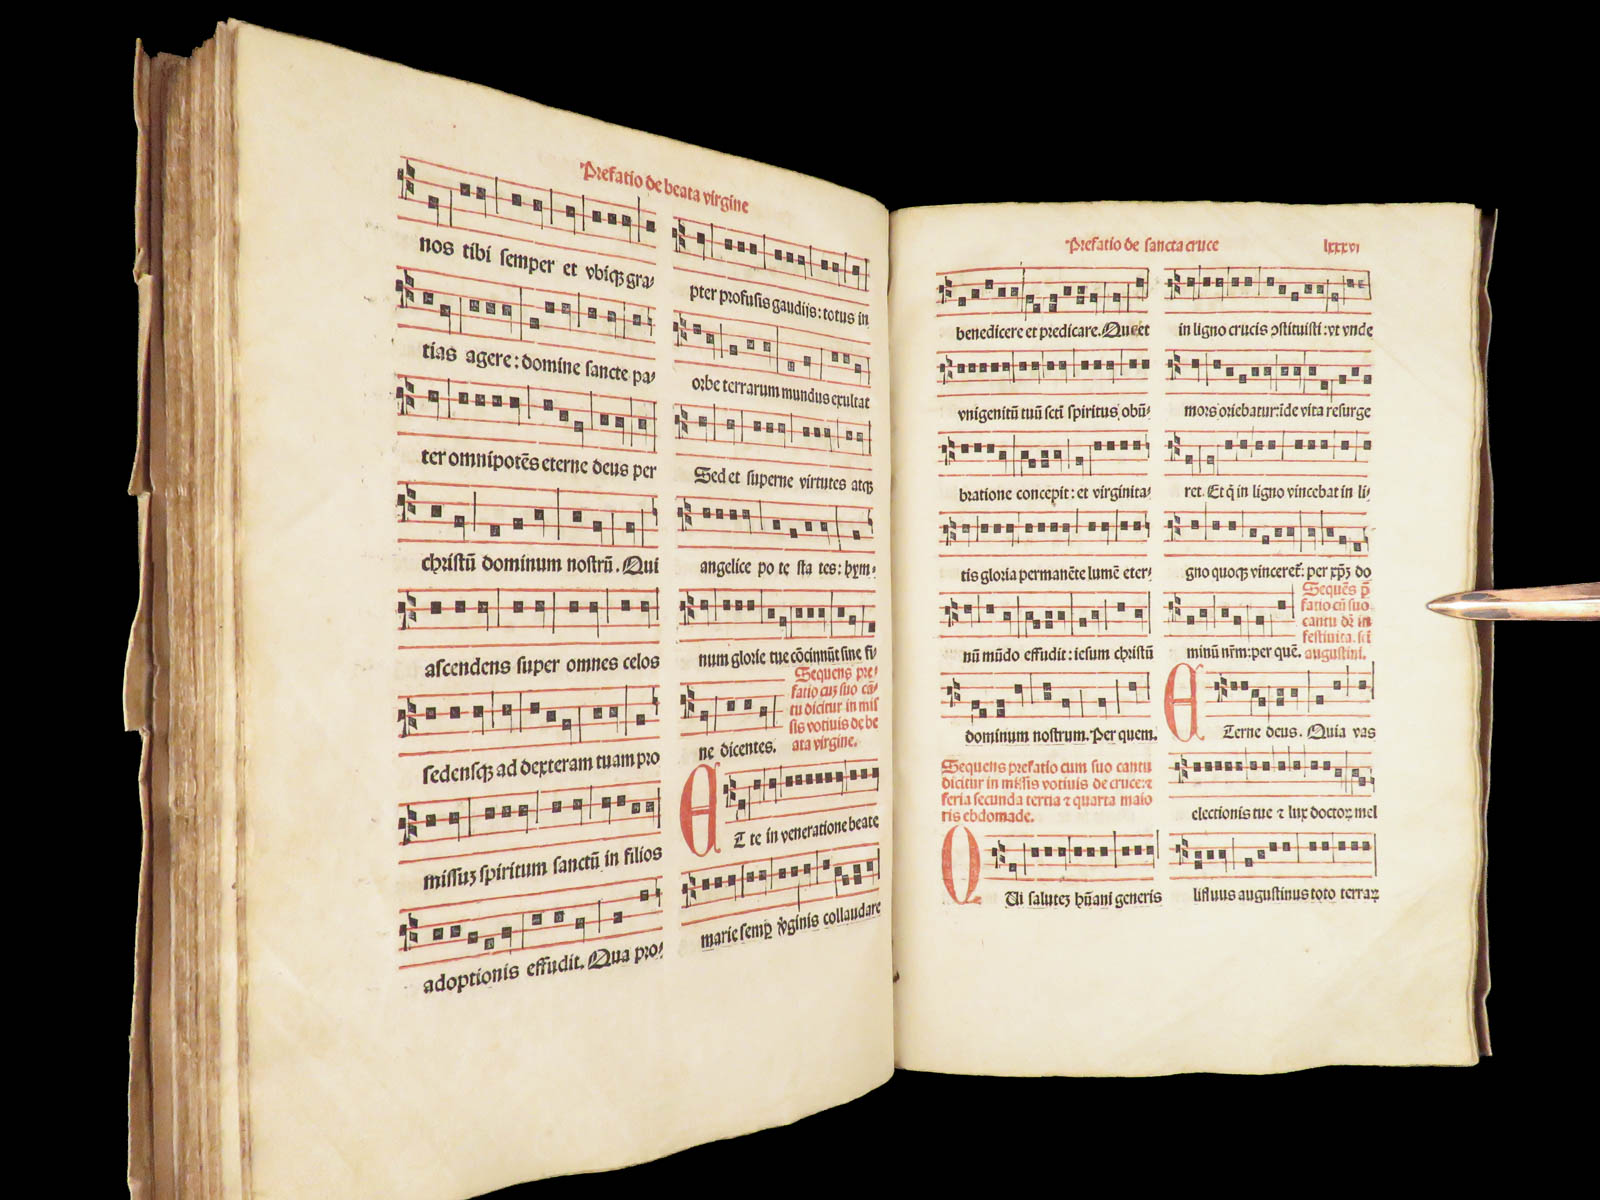 Prefatio de beata virgine
nos tibi semper et vbiqȝ gra⸗
tias agere: domine sancte pa⸗
ter omnipotēs eterne deus per
christū dominum nostrū. Qui
ascendens super omnes celos
sedensqȝ ad dexteram tuam pro
missuȝ spiritum sanctū in filios
adoptionis effudit. Qua pro⸗
pter profusis gaudijs: totus in
orbe terrarum mundus exultat
Sed et superne virtutes atqȝ
angelice po te sta tes: hym⸗
num glorie tue cōcinnūt sine fi⸗
ne dicentes.
Sequens pre⸗
fatio cuȝ suo cā⸗
tu dicitur in mis
sis votiuis de be
ata virgine.
ET te in veneratione beate
marie semꝑ v̓ginis collaudare
Prefatio de sancta cruce
lxxxvi
benedicere et predicare. Que et
vnigenitū tuū scti spiritus obū⸗
bratione concepit: et virginita⸗
tis gloria permanēte lumē eter⸗
nū mūdo effudit: iesum christū
dominum nostrum. Per quem.
Sequens prefatio cum suo cantu
dicitur in missis votiuis de cruce: ⁊
feria secunda tertia ⁊ quarta maio
ris ebdomade.
QUi saluteȝ hūani generis
in ligno crucis ꝯstituisti: vt vnde
mors oriebatur: īde vita resurge
ret. Et q̄ in ligno vincebat in li⸗
gno quoqȝ vinceret: per xp̄ȝ do
minū nr̄m: per quē.
Sequēs p̄
fatio cū suo
cantu dr̄ in
festiuita. sci
augustini.
ETerne deus. Quia vas
electionis tue ⁊ lux doctoꝝ mel
lifluus augustinus toto terraꝝ